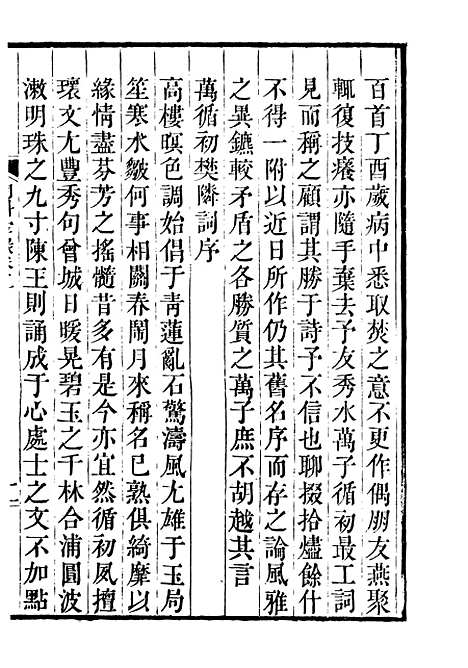 百首丁酉歲病中悉取焚之意不更作偶朋友燕聚
輒復技癢亦隨手棄去予友秀水萬子循初最工詞
見而稱之顧謂其勝于詩予不信也聊掇拾燼餘什
不得一附以近日所作仍其舊名序而存之論風雅
之異鑣較矛盾之各勝質之萬子庶不胡越其言
萬循初樊隣詞序
高樓暝色調始倡于靑蓮亂石驚濤風尤雄于玉局
笙寒水皺何事相關春鬧月來稱名已熟俱綺靡以
緣情盡芬芳之搖髓昔多有是今亦宜然循初夙擅
瓌文尤豐秀句曾城日暖晃碧玉之千林合浦圓波
漱明珠之九寸陳王則誦成于心處士之文不加點